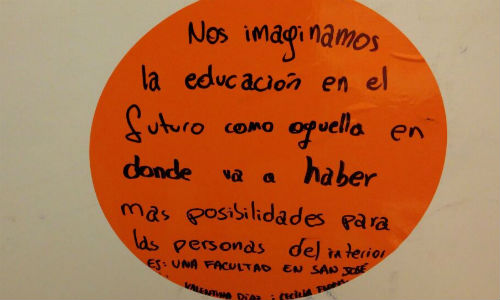 Nos imaginamos
la educación en el
futuro como aquella en
donde va a haber
mas posibilidades para
las personas del interior
ES: UNA FACULTAD EN SAN JOSÉ
VALENTINA DÍAZ ; CECILIA